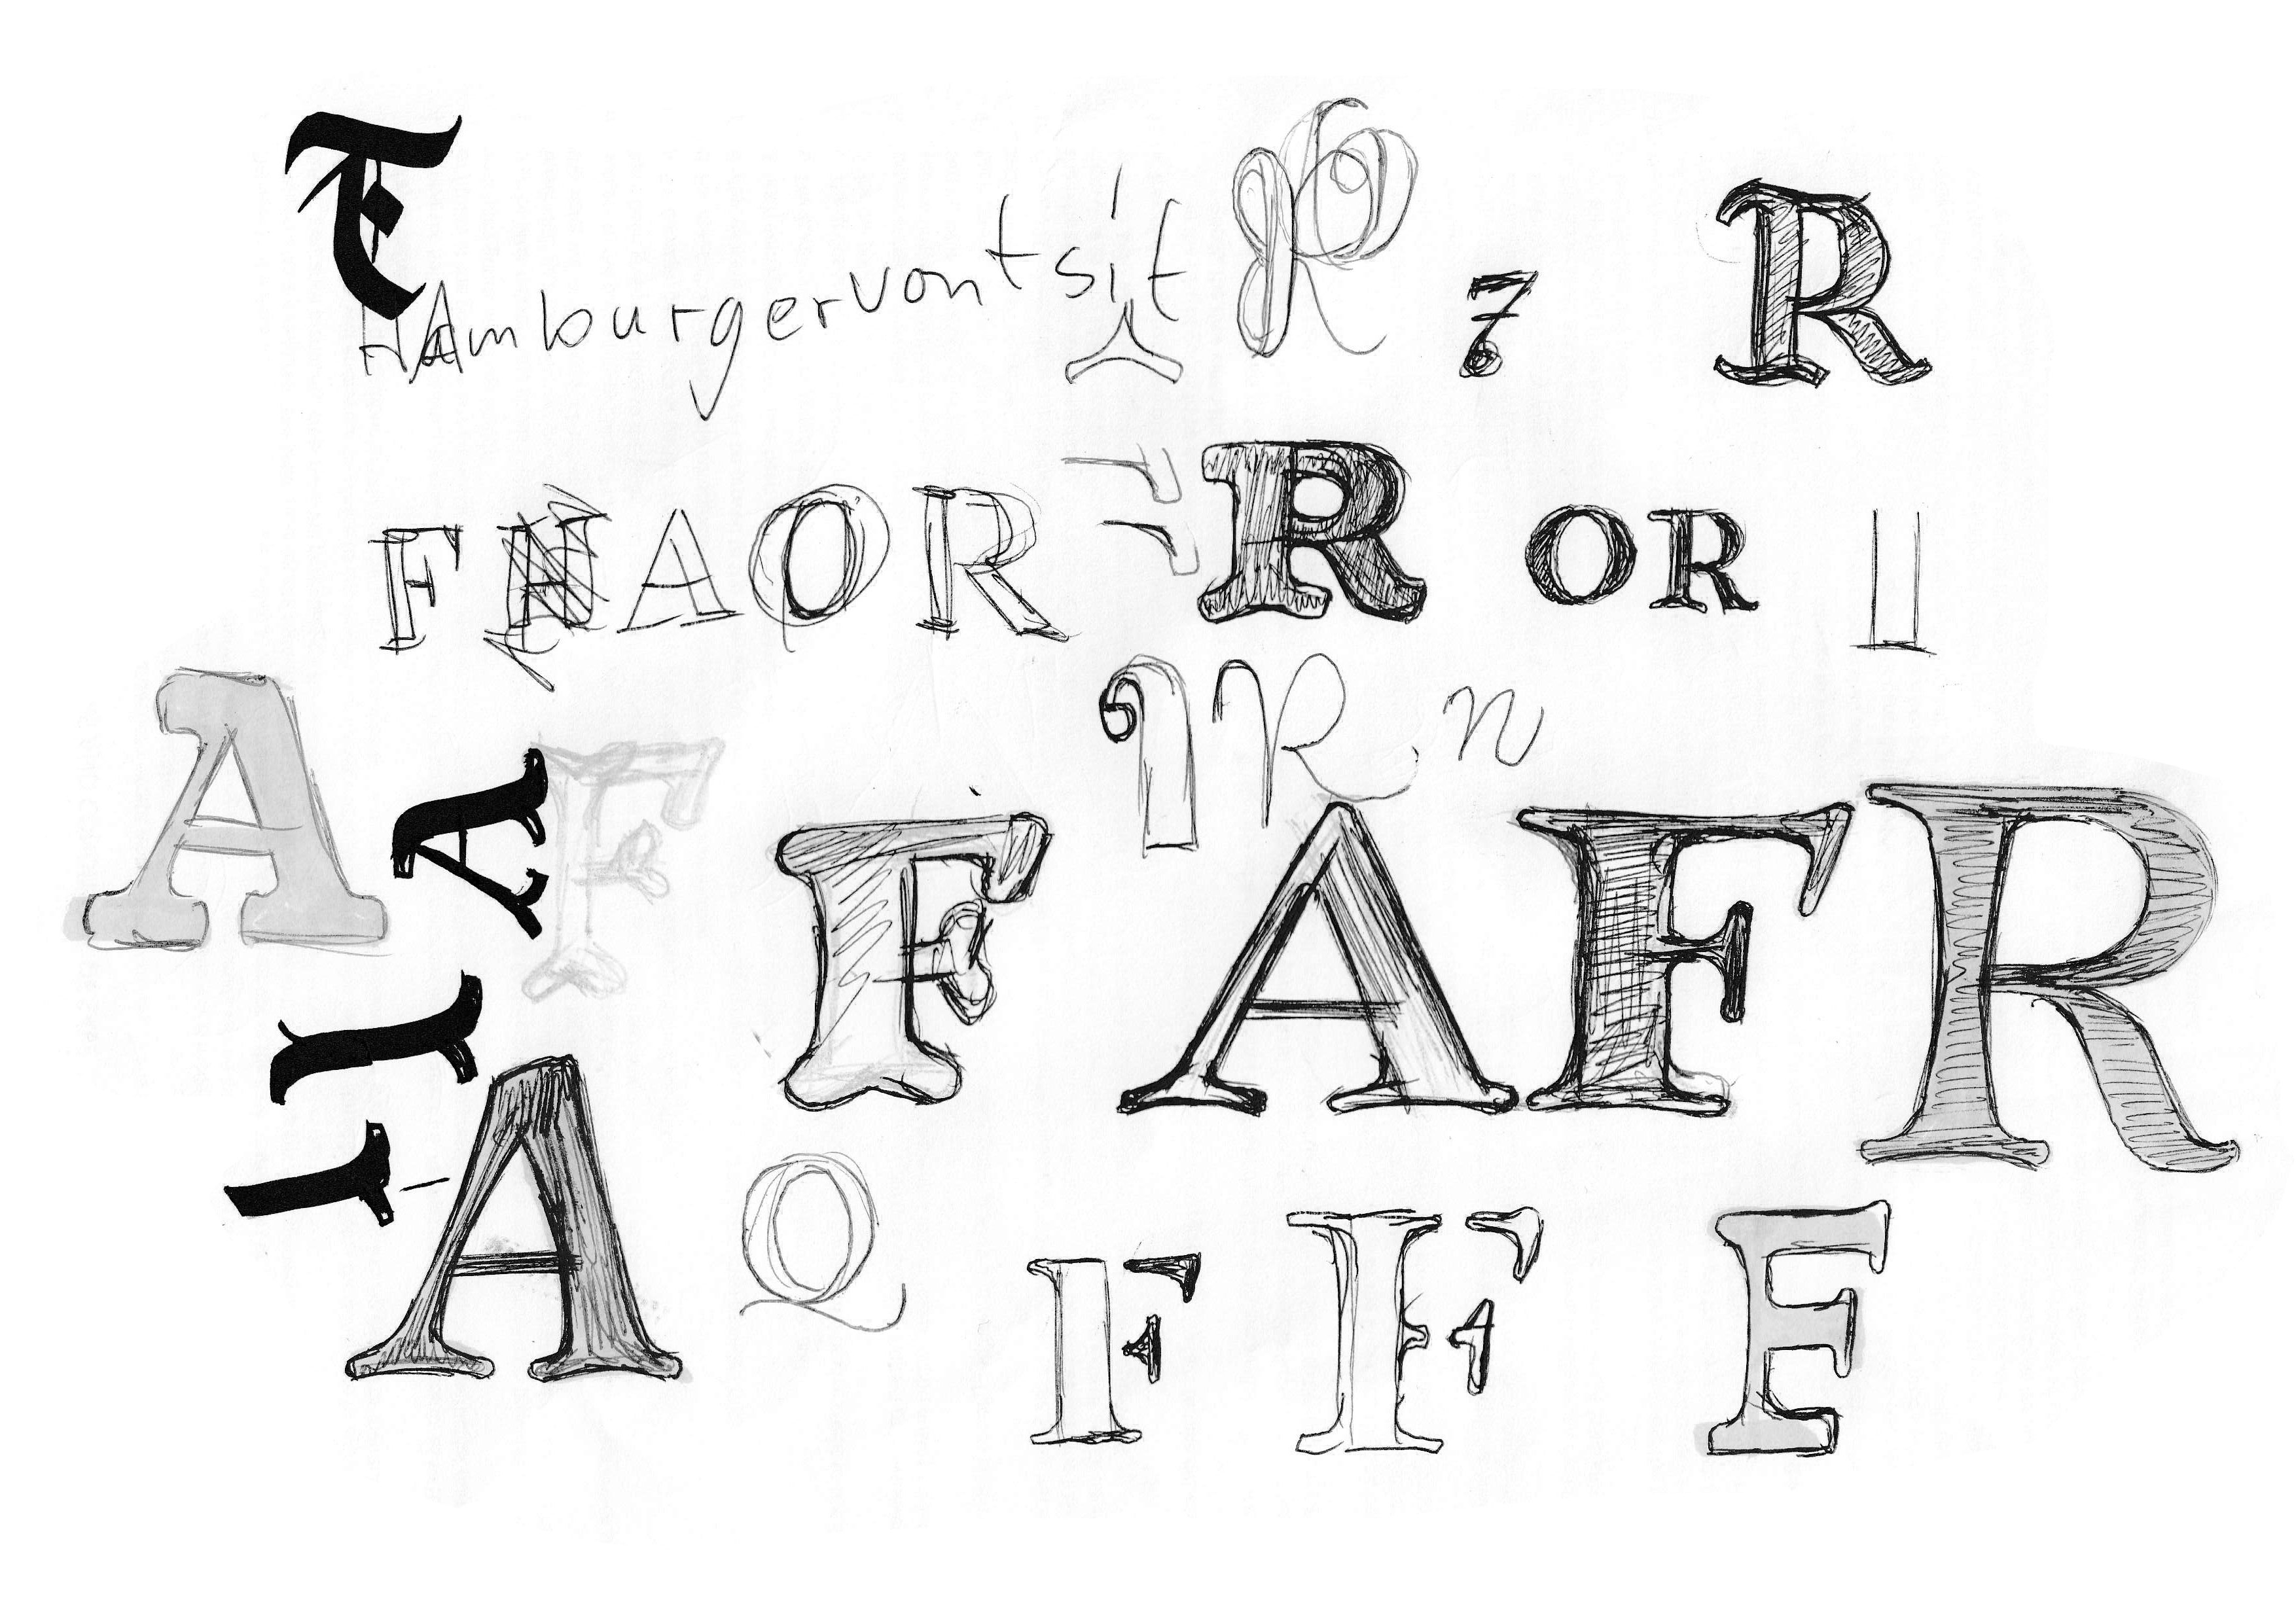 T
HAmburgervontsit R 7 R
FHAOR R OR
A R n
A F F A F R
A Q F F E